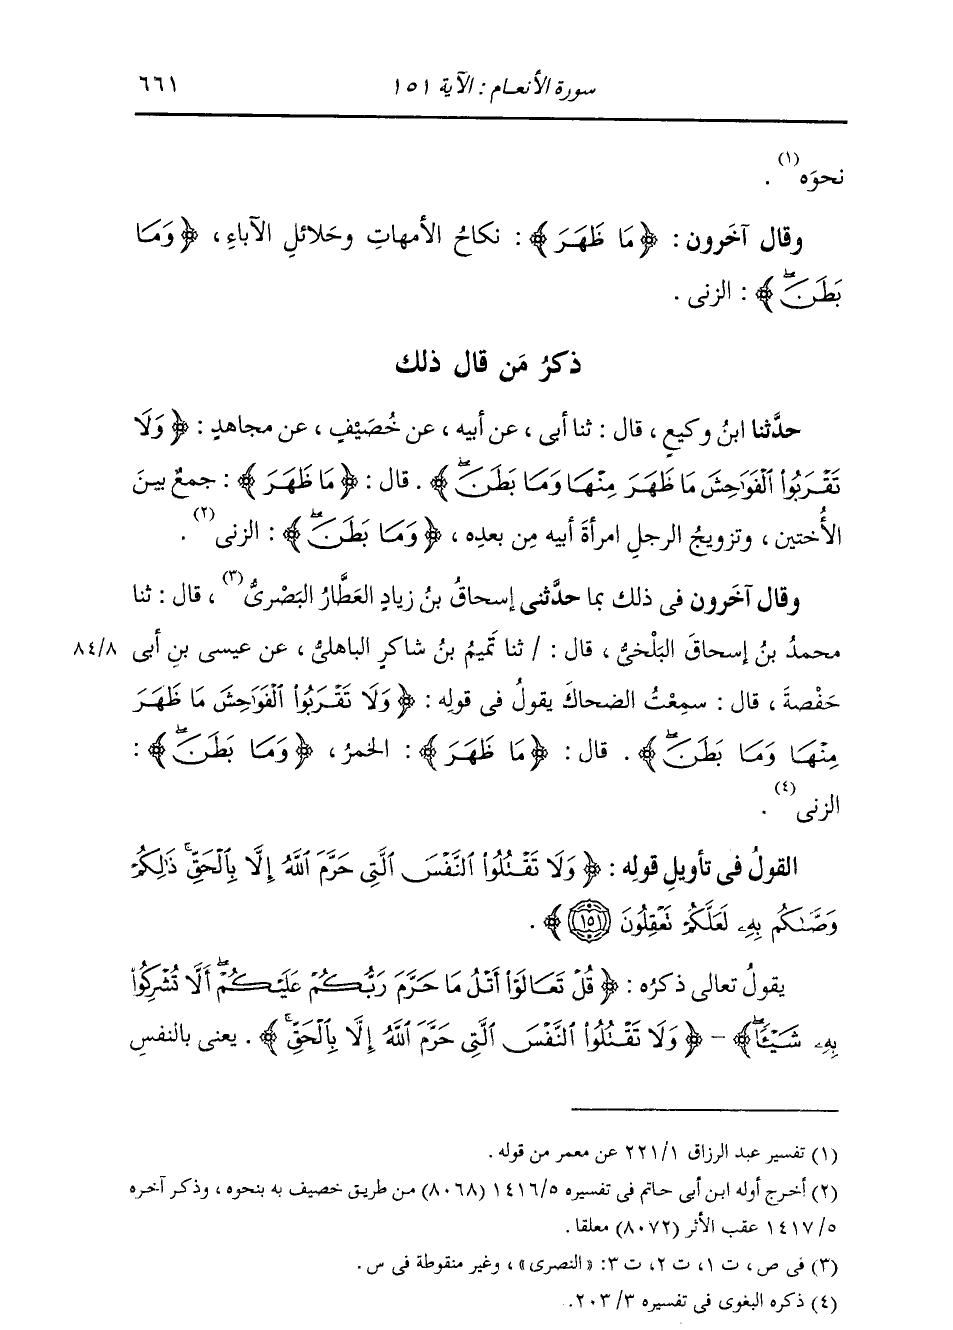 سورة الأنعـام : الآية ١٥١ ٦٦١
نحوَه(١) .
وقال آخَرون : ﴿ مَا ظَهَرَ ﴾ : نكاحُ الأمهاتِ وحَلائلِ الآباءِ ، ﴿ وَمَا
بَطَنَۖ ﴾ : الزنى .
ذكرُ مَن قال ذلك
حدَّثنا ابنُ وكيعٍ ، قال : ثنا أبى ، عن أبيه ، عن خُصَيْفٍ ، عن مجاهدٍ : ﴿ وَلَا
تَقْرَبُواْ ٱلْفَوَٰحِشَ مَا ظَهَرَ مِنْهَا وَمَا بَطَنَۖ ﴾ . قال : ﴿ مَا ظَهَرَ ﴾ : جمعٌ بينَ
الأُختين ، وتزويجُ الرجلِ امرأةَ أبيه مِن بعدِه ، ﴿ وَمَا بَطَنَۖ ﴾ : الزنى(٢) .
وقال آخَرون فى ذلك بما حدَّثنى إسحاقُ بنُ زيادٍ العَطَّارُ البَصْرىُّ(٣) ، قال : ثنا
محمدُ بنُ إسحاقَ البَلْخىُّ ، قال : / ثنا تَميمُ بنُ شاكرٍ الباهلىُّ ، عن عيسى بنِ أبى ٨٤/٨
حَفْصةَ ، قال : سمِعْتُ الضحاكَ يقولُ فى قولِه : ﴿ وَلَا تَقْرَبُواْ ٱلْفَوَٰحِشَ مَا ظَهَرَ
مِنْهَا وَمَا بَطَنَۖ ﴾ . قال : ﴿ مَا ظَهَرَ ﴾ : الخمرُ ، ﴿ وَمَا بَطَنَۖ ﴾ :
الزنى(٤) .
القولُ فى تأويلِ قولِه : ﴿ وَلَا تَقْتُلُواْ ٱلنَّفْسَ ٱلَّتِى حَرَّمَ ٱللَّهُ إِلَّا بِٱلْحَقِّۚ ذَٰلِكُمْ
وَصَّىٰكُم بِهِۦ لَعَلَّكُمْ تَعْقِلُونَ ١٥١ ﴾ .
يقولُ تعالى ذكرُه : ﴿ قُلْ تَعَالَوْاْ أَتْلُ مَا حَرَّمَ رَبُّكُمْ عَلَيْكُمْۖ أَلَّا تُشْرِكُواْ
بِهِۦ شَيْـًٔاۖ﴾ - ﴿ وَلَا تَقْتُلُواْ ٱلنَّفْسَ ٱلَّتِى حَرَّمَ ٱللَّهُ إِلَّا بِٱلْحَقِّۚ ﴾ . يعنى بالنفسِ
(١) تفسير عبد الرزاق ٢٢١/١ عن معمر من قوله .
(٢) أخرج أوله ابن أبى حاتم فى تفسيره ١٤١٦/٥ (٨٠٦٨) من طريق خصيف به بنحوه ، وذكر آخره
١٤١٧/٥ عقب الأثر (٨٠٧٢) معلقا .
(٣) فى ص ، ت ١، ت ٢، ت ٣: « النصرى » ، وغير منقوطة فى س .
(٤) ذكره البغوى فى تفسيره ٢٠٣/٣.